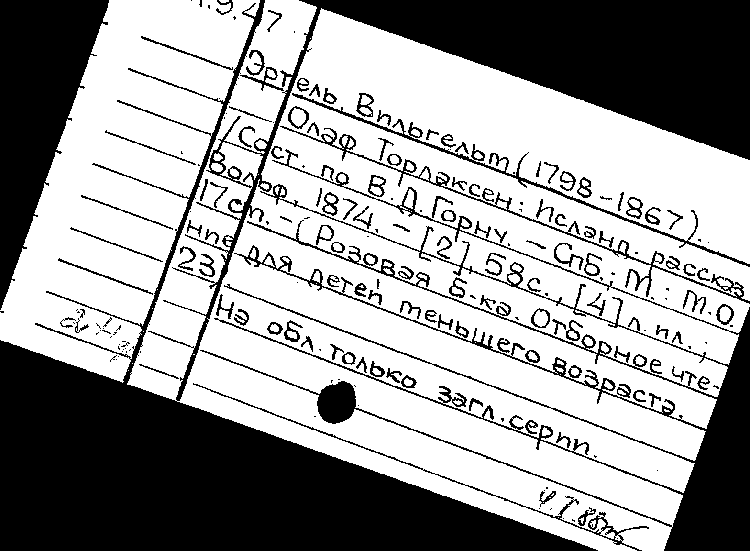 .9.47
Эртель, Вильгельм (1798-1867).
Олаф Торлаксен: Исланд. рассказ
/Сост. по В.Д. Горну. – СпБ.; М.: М.О.
Вольф, 1874. – [2], 58с., [4] л.ил.;
17см. – (Розовая б-ка. Отборное чте-
ние для детей меньшего возраста.
23)
На обл. только загл. серии.